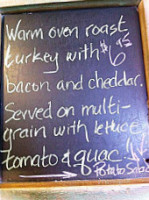 Warm oven roast
turkey with $6
bacon and cheddar.
Served on multi-
grain with lettuce
tomato & guac!!
Potato